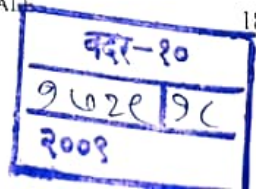 वदर-१०
१७२९ १८
२००९